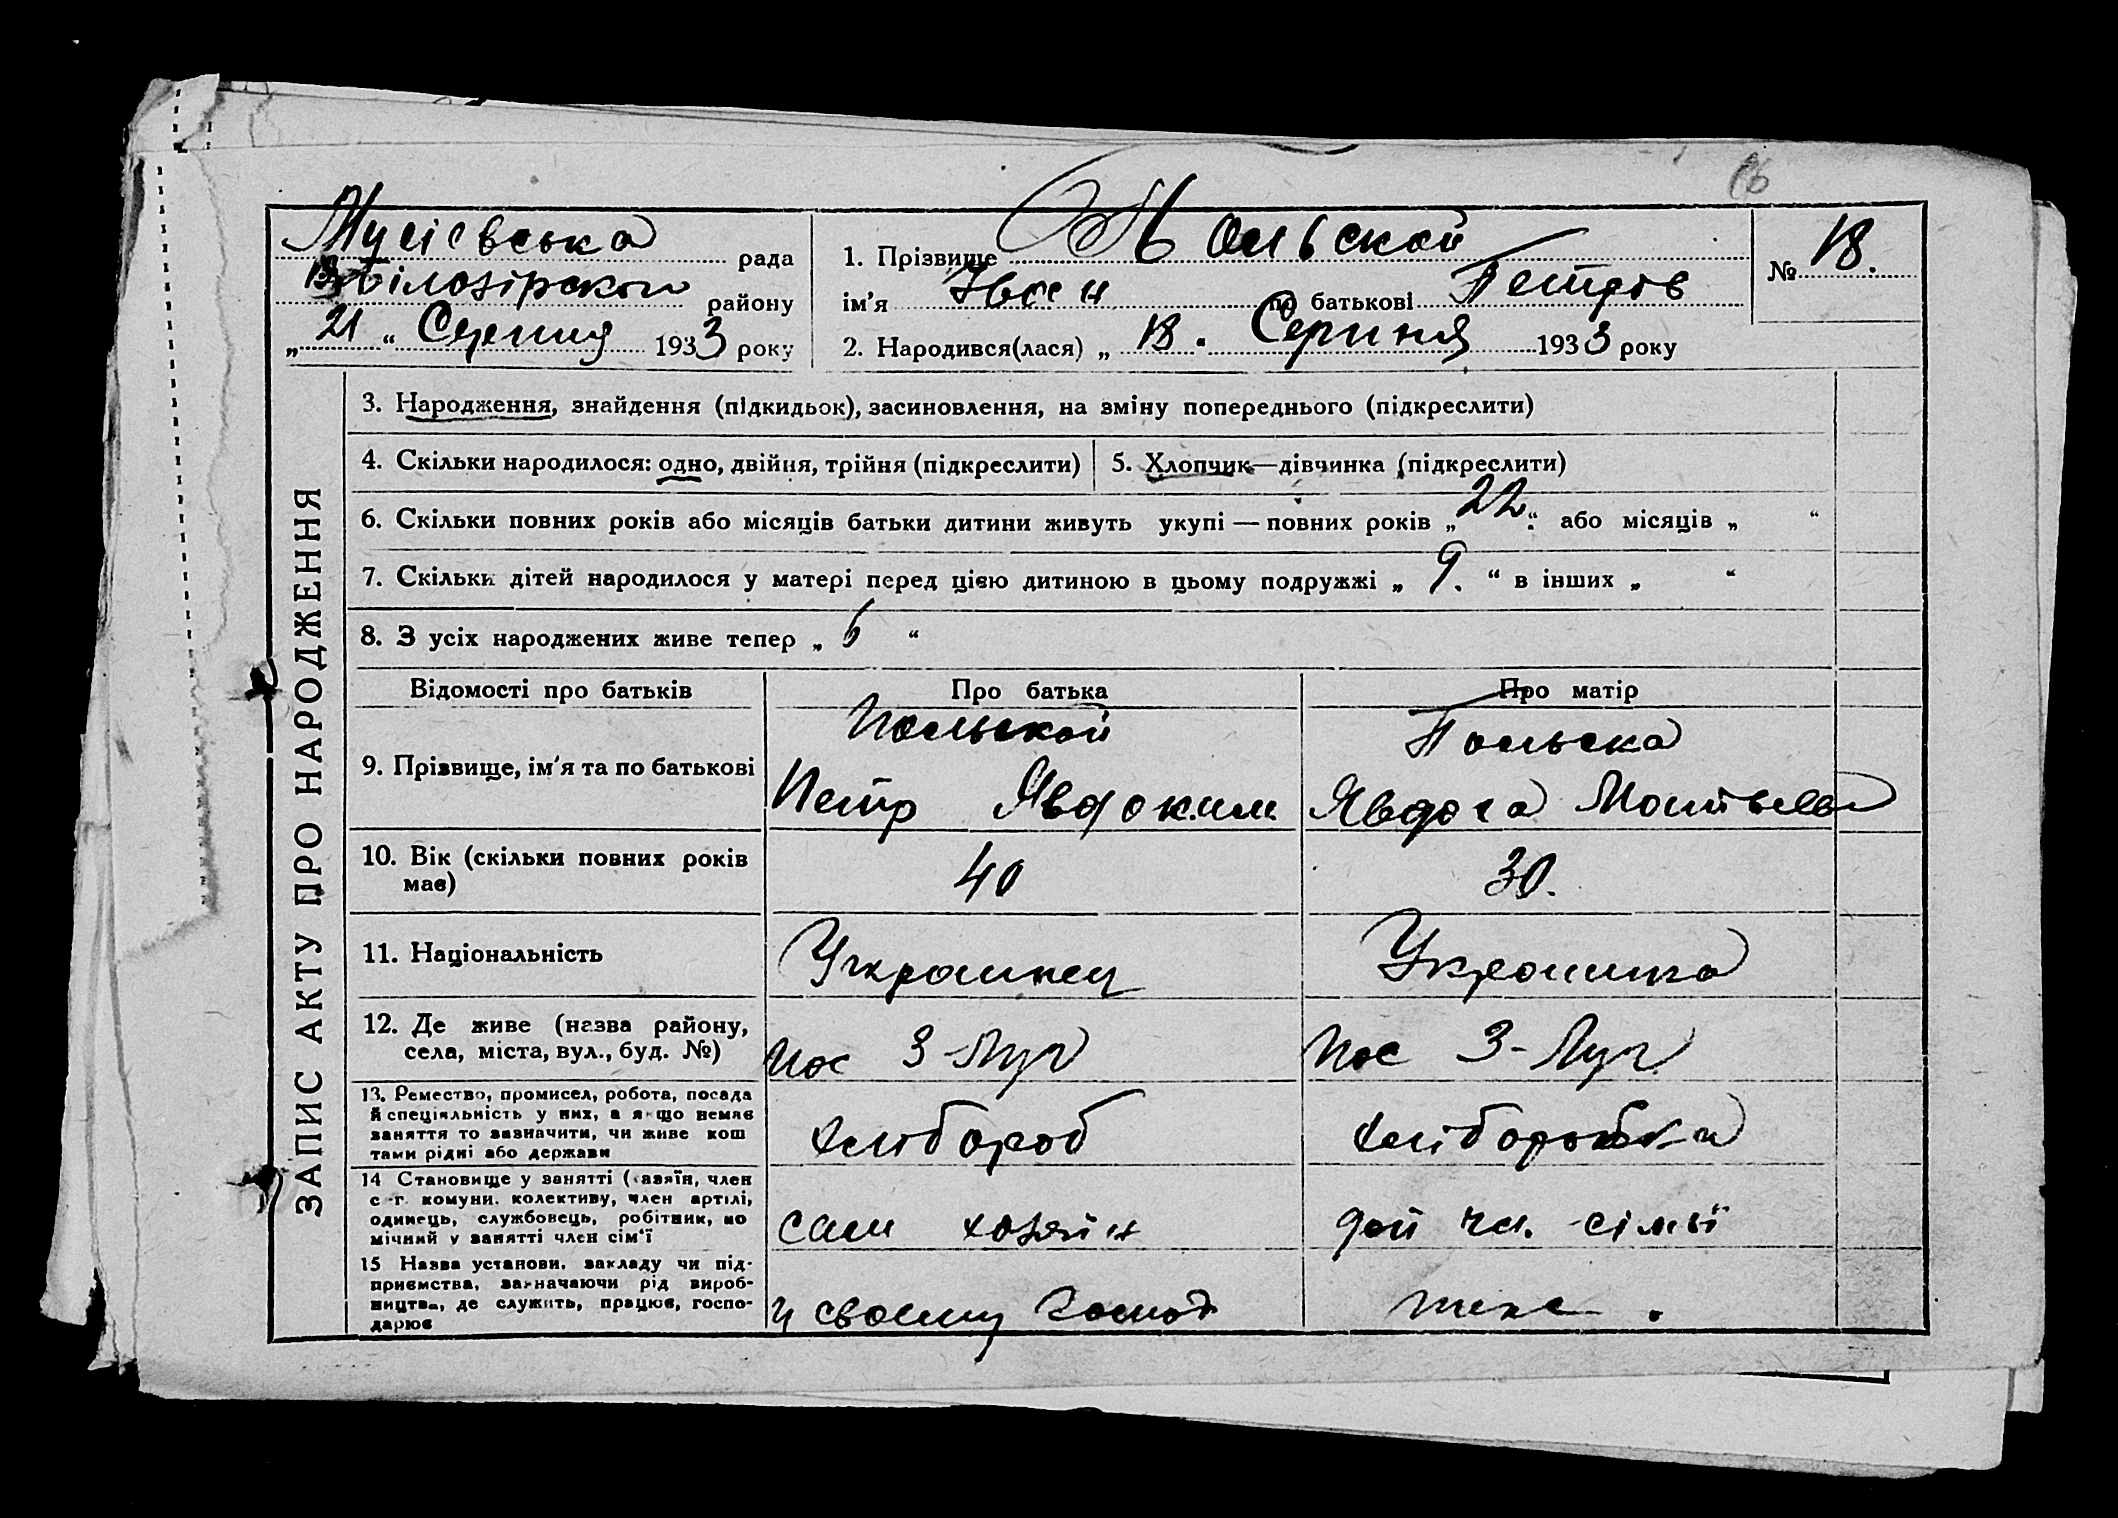 Мусієвська рада
Білозірської району
„ 21 “ Серпня 1933 року
1. Прізвище Польской
ім’я Іван по батькові Петров
2. Народився(лася) „ 18. Серпня 1933 року
№ 18.
ЗАПИС АКТУ ПРО НАРОДЖЕННЯ
3. Народження, знайдення (підкидьок), засиновлення, на зміну попереднього (підкреслити)
4. Скільки народилося: одно, двійня, трійня (підкреслити)
5. Хлопчик—дівчинка (підкреслити)
6. Скільки повних років або місяців батьки дитини живуть укупі — повних років „ 22 “ або місяців „ “
7. Скільки дітей народилося у матері перед цією дитиною в цьому подружжі „ 9. “ в інших „ “
8. З усіх народжених живе тепер „ 6 “
Відомості про батьків Про батька Про матір
9. Прізвище, ім’я та по батькові
Польской
Петр Явдоким
Польска
Явдоха
10. Вік (скільки повних років
має)
40
30.
11. Національність
Украинец
Украинка
12. Де живе (назва району,
села, міста, вул., буд. №)
пос 3-Луч
пос 3-Луч
13. Ремество, промисел, робота, посада
й спеціяльність у них, а якщо немає
заняття то зазначити, чи живе кош
тами рідні або держави
хлібороб
хліборобка
14 Становище у занятті (хазяїн, член
с-г. комуни, колективу, член артілі,
одинець, службовець, робітник, по
мічний у занятті член сім’ї
сам хозяїн
доп чл. сімьї
15 Назва установи, закладу чи під-
приємства, зазначаючи рід вироб-
ництва, де служить, працює, госпо-
дарює
у своему господ
теке.